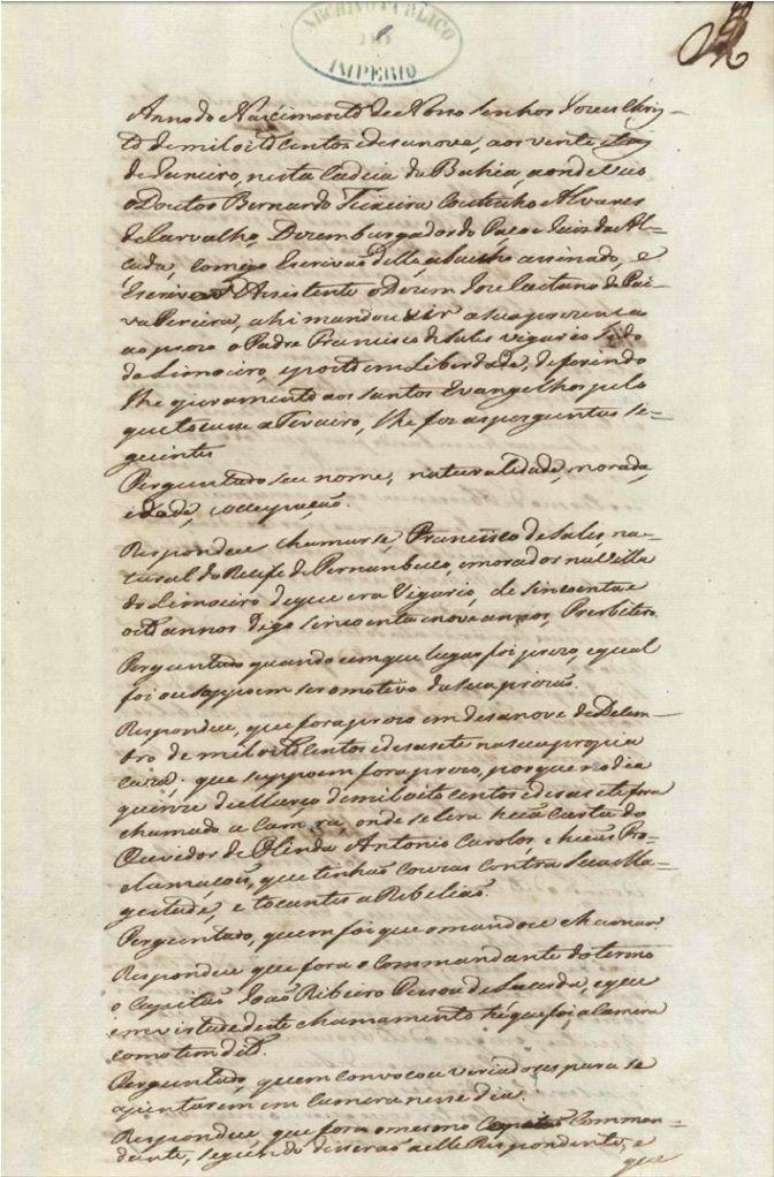 ARCHIVO PUBLICO
DO
IMPERIO
Anno do Naiscimento de Nosso Senhor Jozus Chris-
to de mil oito centos edesanove, aos vente e tres
de Janeiro, nesta Cadeia da Bahia, aonde veio
o Doutor Bernardo Teixeira Coutinho Alvares
de Carvalho, Dezembargador do Paço e Juis da Al-
cada, comigo Escrivaõ della abaicho assinado, e
Escrivaõ Assistente o Dezem. Joze Caetano de Pai-
va Pereira, ahi mandou vir a sua prezença
ao prezo o Padre Francisco de Sales vigario
do Limoeiro, e posto em Liberdade, deferindo
lhe o juramento aos Santos Evangelhos pelo
que tocasse a Terceiro, lhe fez as perguntas se-
guintes
Perguntado seu nome, naturalidade, morada,
idade, occupaçaõ.
Respondeu chamarse, Francisco de Sales, na-
tural do Recife de Pernanbuco, e morador na Villa
do Limoeiro de que era Vigario, de sincoenta e
oito annos digo sincoenta e nove annos, Presbitero
Perguntado quando e em que lugar foi prezo, e qual
foi ou suppoem ser o motivo da sua prizaõ.
Respondeu, que fora prezo em desanove de Dezem-
bro de mil oito centos e desasete na sua propria
caza, que suppoem fora prezo, porque no dia
quinze de Março de mil oito centos e desasete fora
chamado a Camara, onde se lera huã Carta do
Ouvidor de Olinda Antonio Carolos, e huãs Pro-
clamaçoẽs, que tinhaõ couzas contra Sua Ma-
gestade, e tocantes a Rebeliaõ.
Perguntado, quem foi que o mandou chamar
Respondeu que fora o Commandante do termo
o Capitaõ Joaõ Ribeiro Pessoa de Lacerda, e que
em virtude deste chamamento hé que foi a Camera
como tem dito.
Perguntado, quem convocou a veriadores para se
ajuntarem em Camera nesse dia.
Respondeu, que fora o mesmo Capitaõ Comman-
dante, segundo disseraõ a elle Respondente, e
que